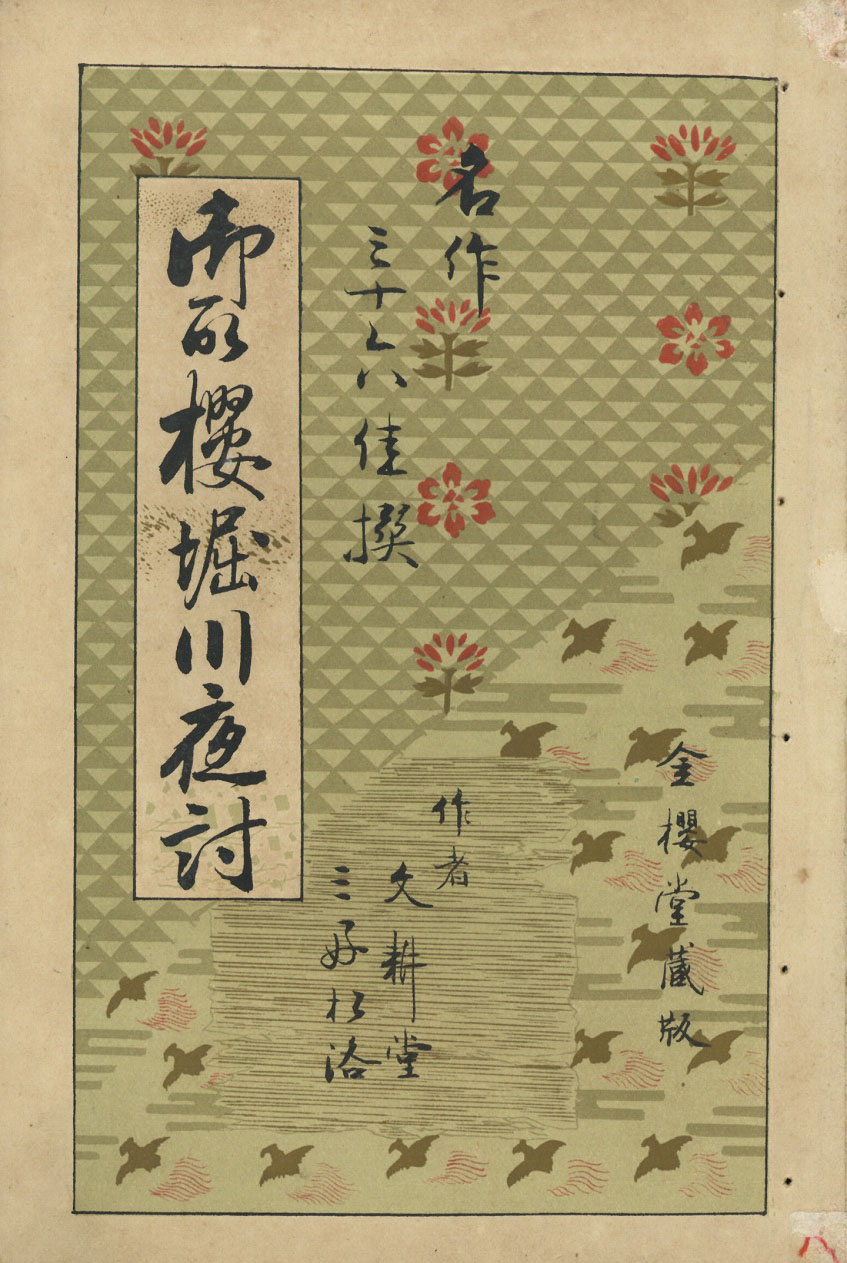 名作
三十六佳撰
御所櫻堀川夜討
作者
文耕堂
三好松洛
金櫻堂藏版